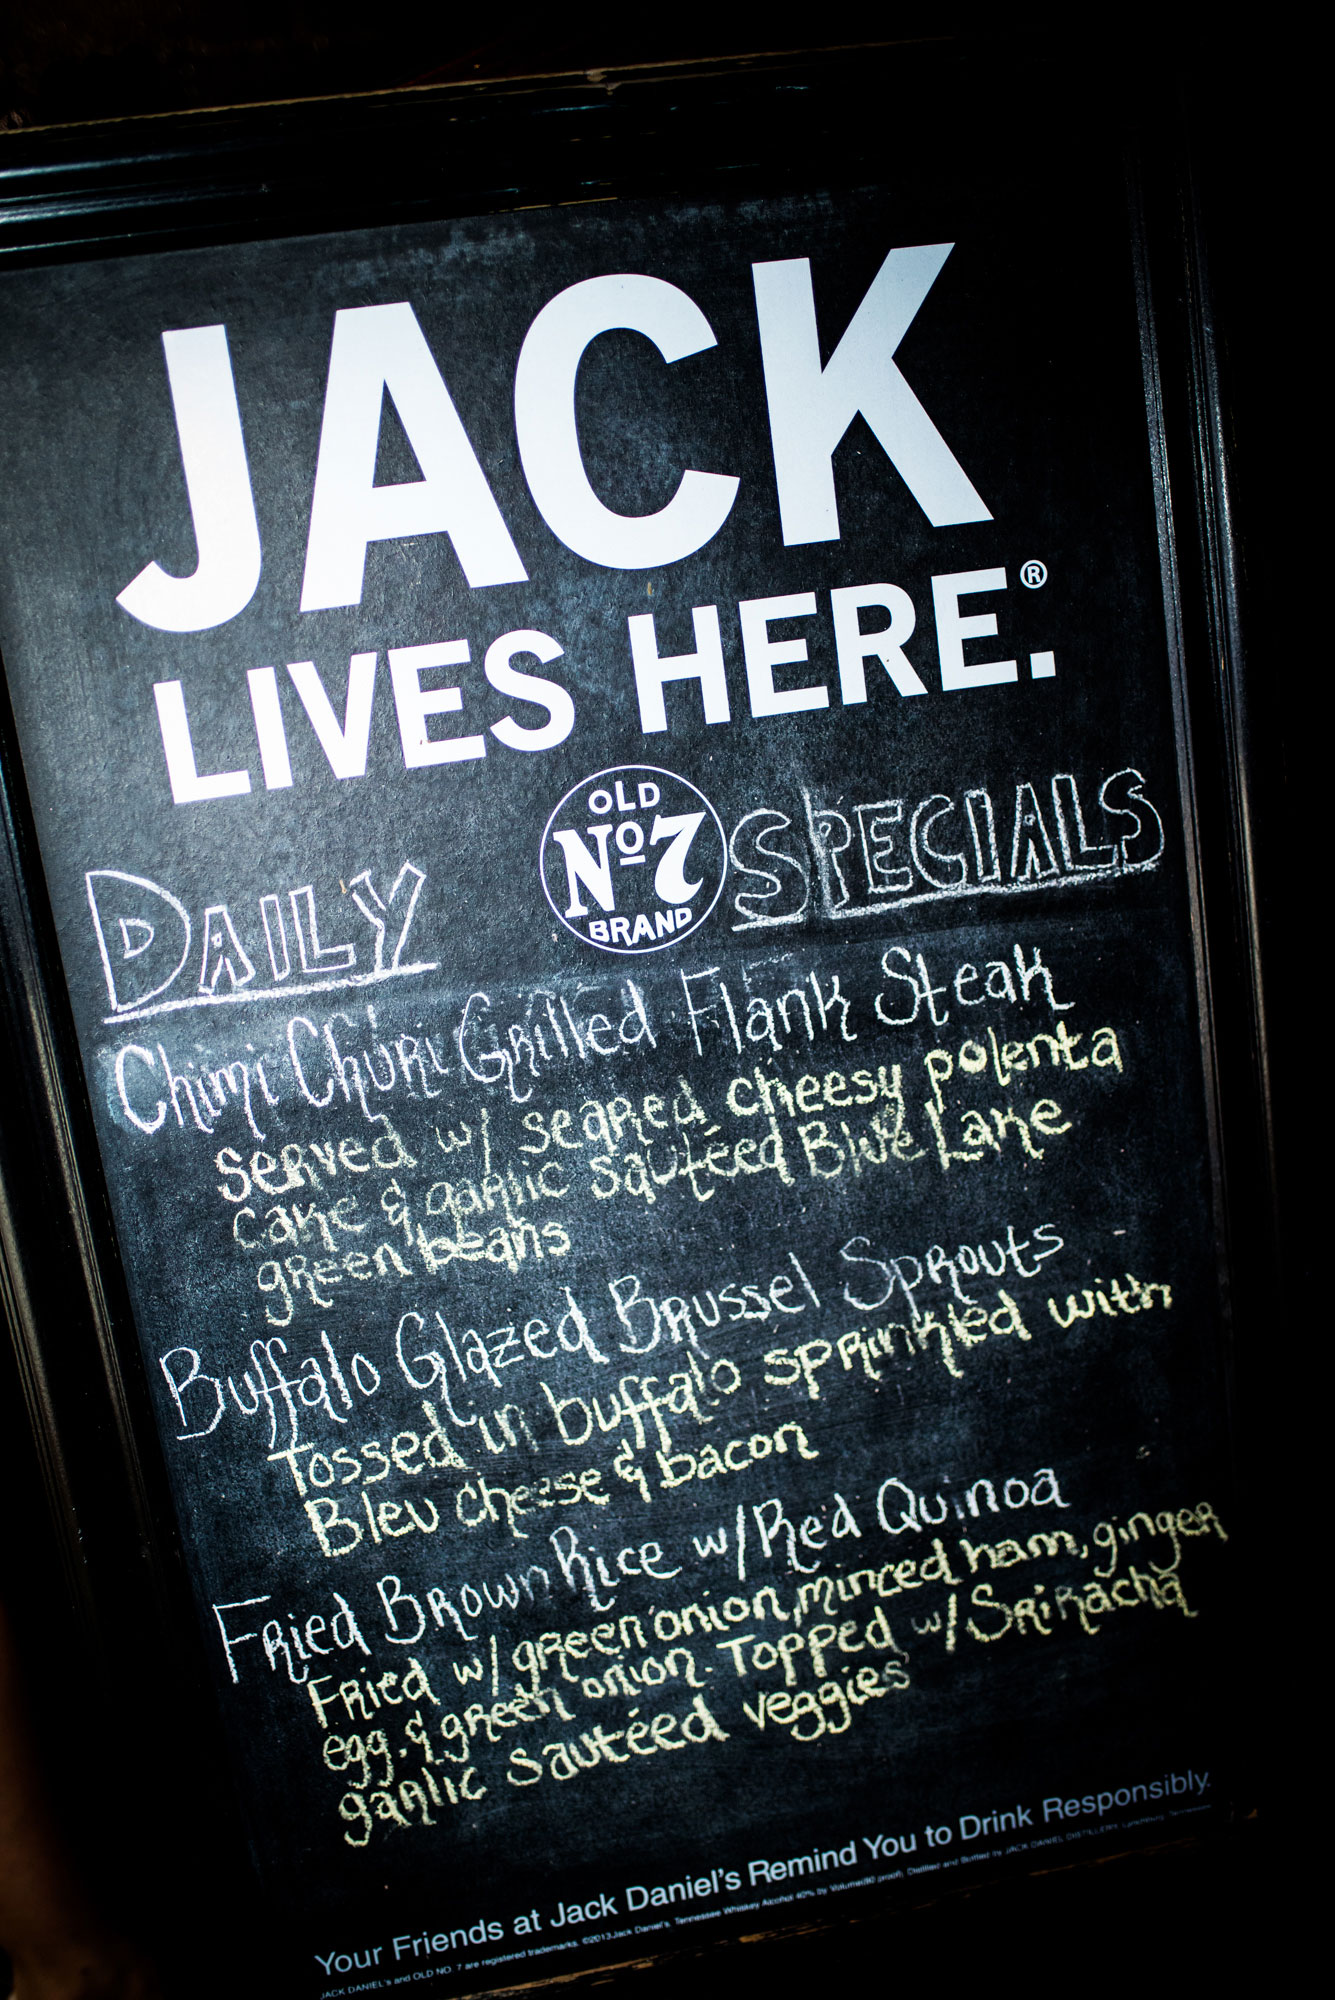 JACK
LIVES HERE.®
OLD
No7
BRAND
DAILY SPECIALS
Chimi Churi Grilled Flank Steak
served w/ seared cheesy polenta
cake & garlic sautéed Blue Lake
green beans
Buffalo Glazed Brussel Sprouts
Tossed in buffalo sprinkled with
Bleu cheese & bacon
Fried Brown Rice w/ Red Quinoa
Fried w/ green onion, minced ham, ginger,
egg. & green onion. Topped w/ Sriracha
garlic sautéed veggies
Your Friends at Jack Daniel's Remind You to Drink Responsibly.
JACK DANIEL's and OLD NO. 7 are registered trademarks. ©2013 Jack Daniel's. Tennessee Whiskey Alcohol 40% by Volume (80 proof). Distilled and Bottled by JACK DANIEL DISTILLERY, Lynchburg, Tennessee